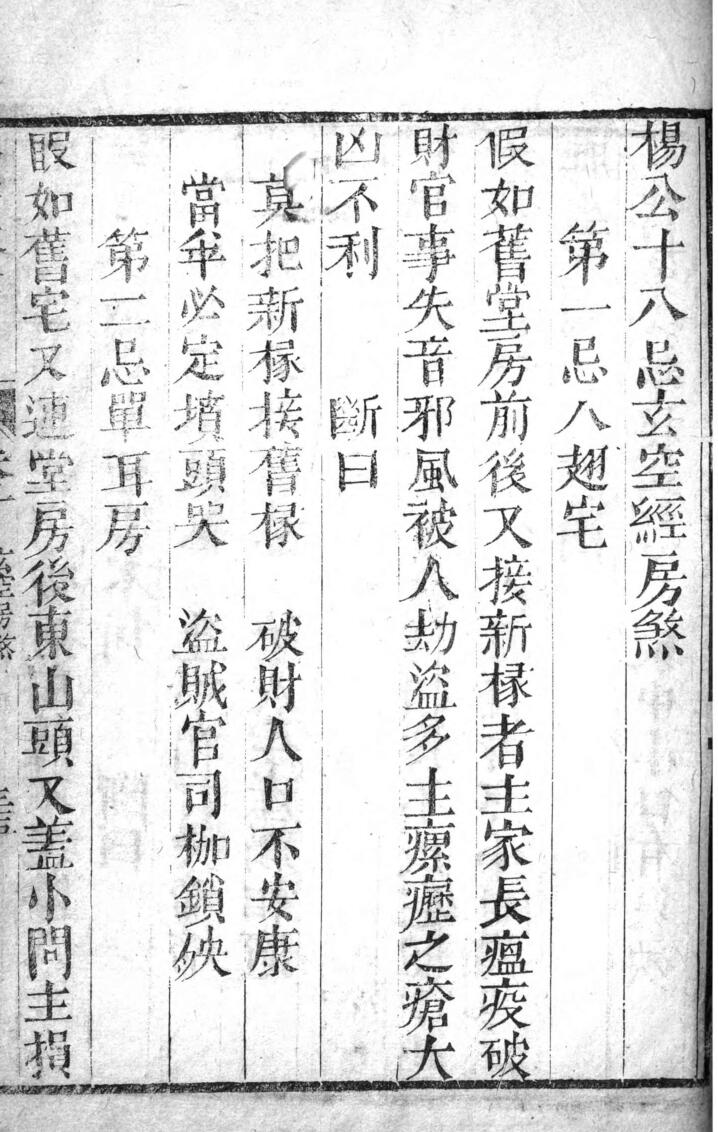 楊公十八忌玄空經房煞
第一忌八翅宅
假如舊堂房前後又接新椽者主家長瘟疫破
財官事失音邪風被人劫盜多主瘰癧之瘡大
凶不利 斷曰
莫把新椽接舊椽 破財人口不安康
當年必定墳頭哭 盜賊官司枷鎖殃
第二忌單耳房
假如舊宅又連堂房後東山頭又蓋小問主損
玄空房煞